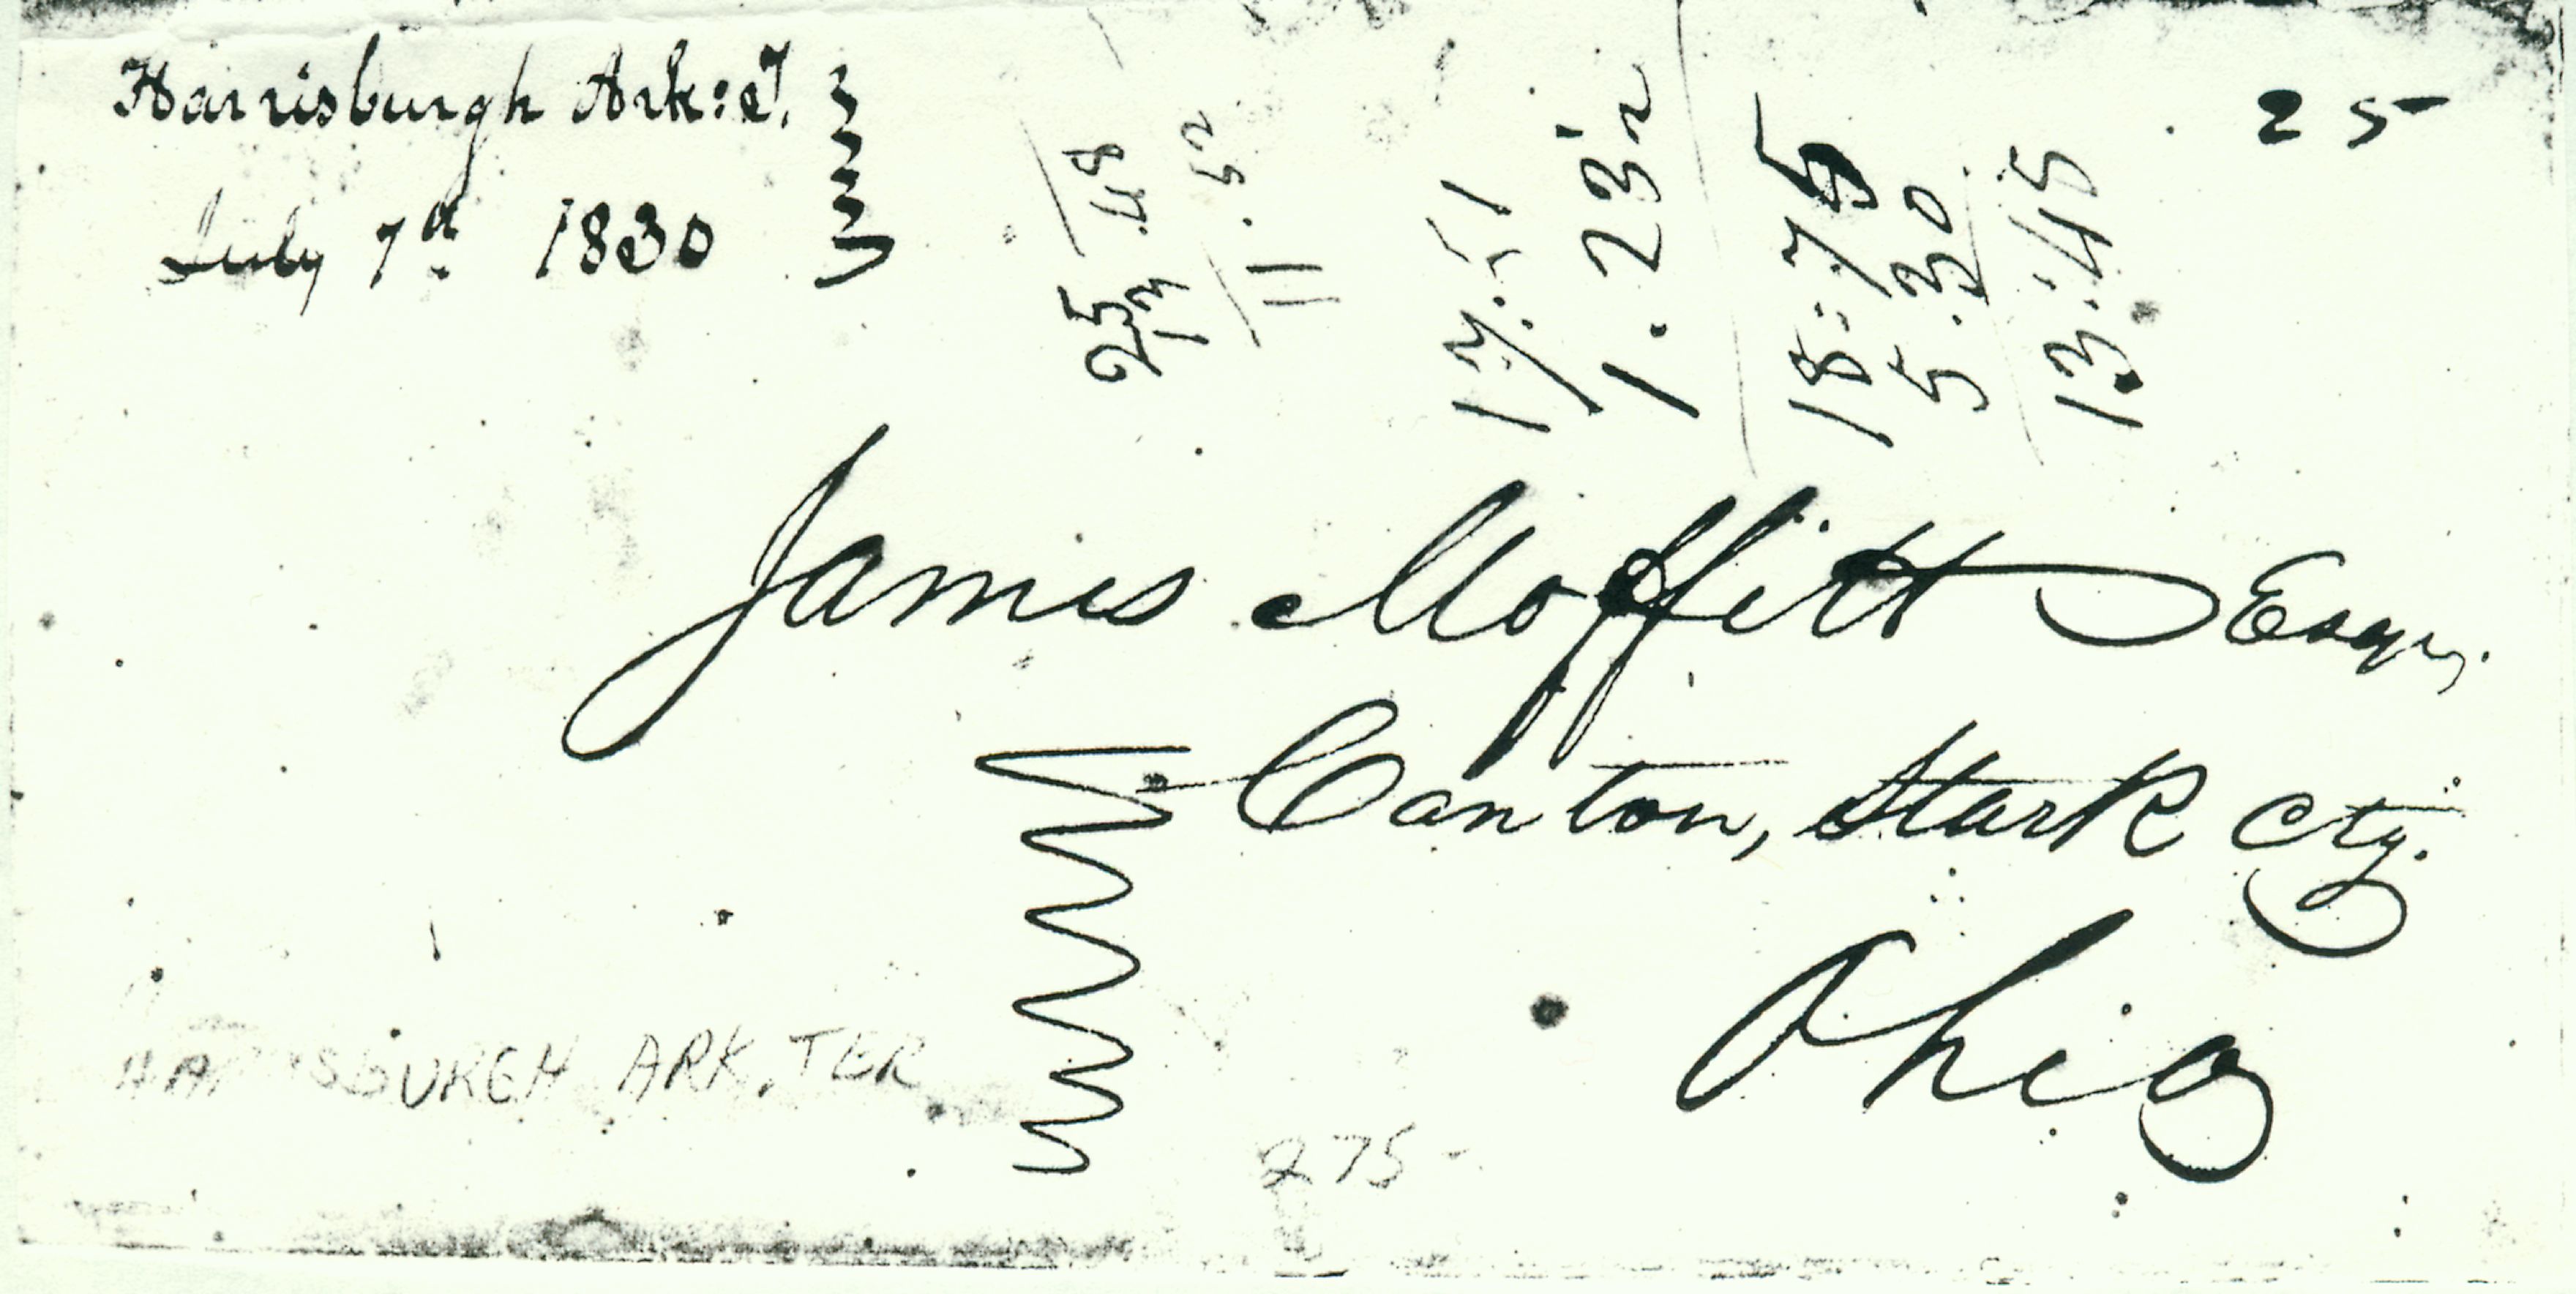 Harrisburgh Ark: T.
July 7d 1830
25
25
13.48
11.52
17.51
1.23 2
18:75
5.30
13:45
James Moffitt Esqr.
Canton, Stark Cty.
Ohio
HARRISBURGH ARK. TER
275-